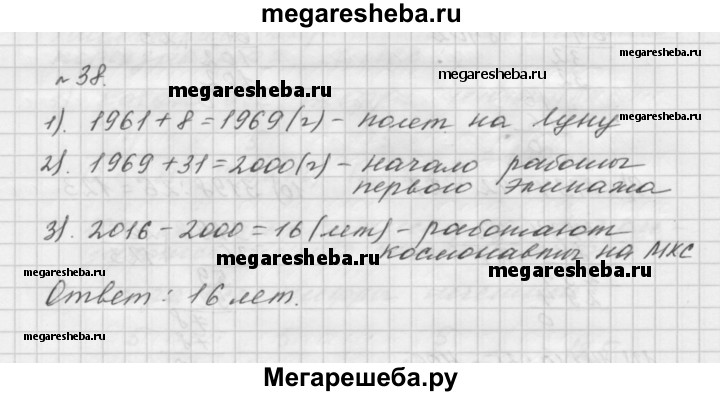 megaresheba.ru
№38.
megaresheba.ru
megaresheba.ru
1). 1961 + 8 = 1969 (г) - полет на Луну
megaresheba.ru
2). 1969 + 31 = 2000 (г) - начало работы
первого экипажа
megaresheba.ru
3). 2016 - 2000 = 16 (лет) - работают
космонавты на МКС
megaresheba.ru
megaresheba.ru
Ответ: 16 лет.
megaresheba.ru
megaresheba.ru
Мегарешеба.ру